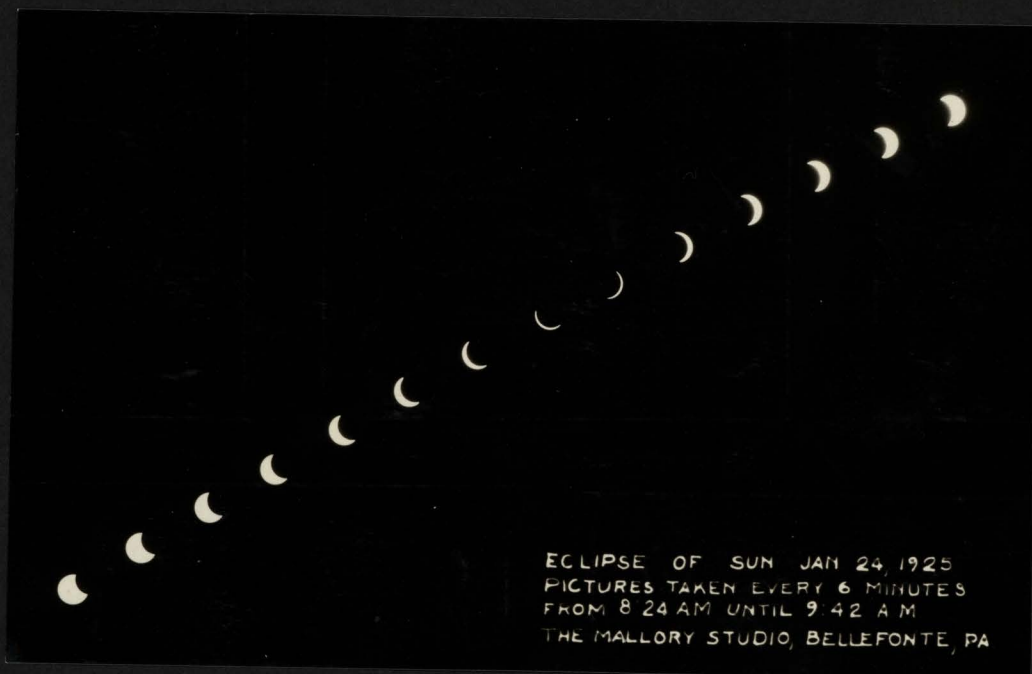 ECLIPSE OF SUN JAN 24, 1925
PICTURES TAKEN EVERY 6 MINUTES
FROM 8:24 AM UNTIL 9:42 A M
THE MALLORY STUDIO, BELLEFONTE, PA